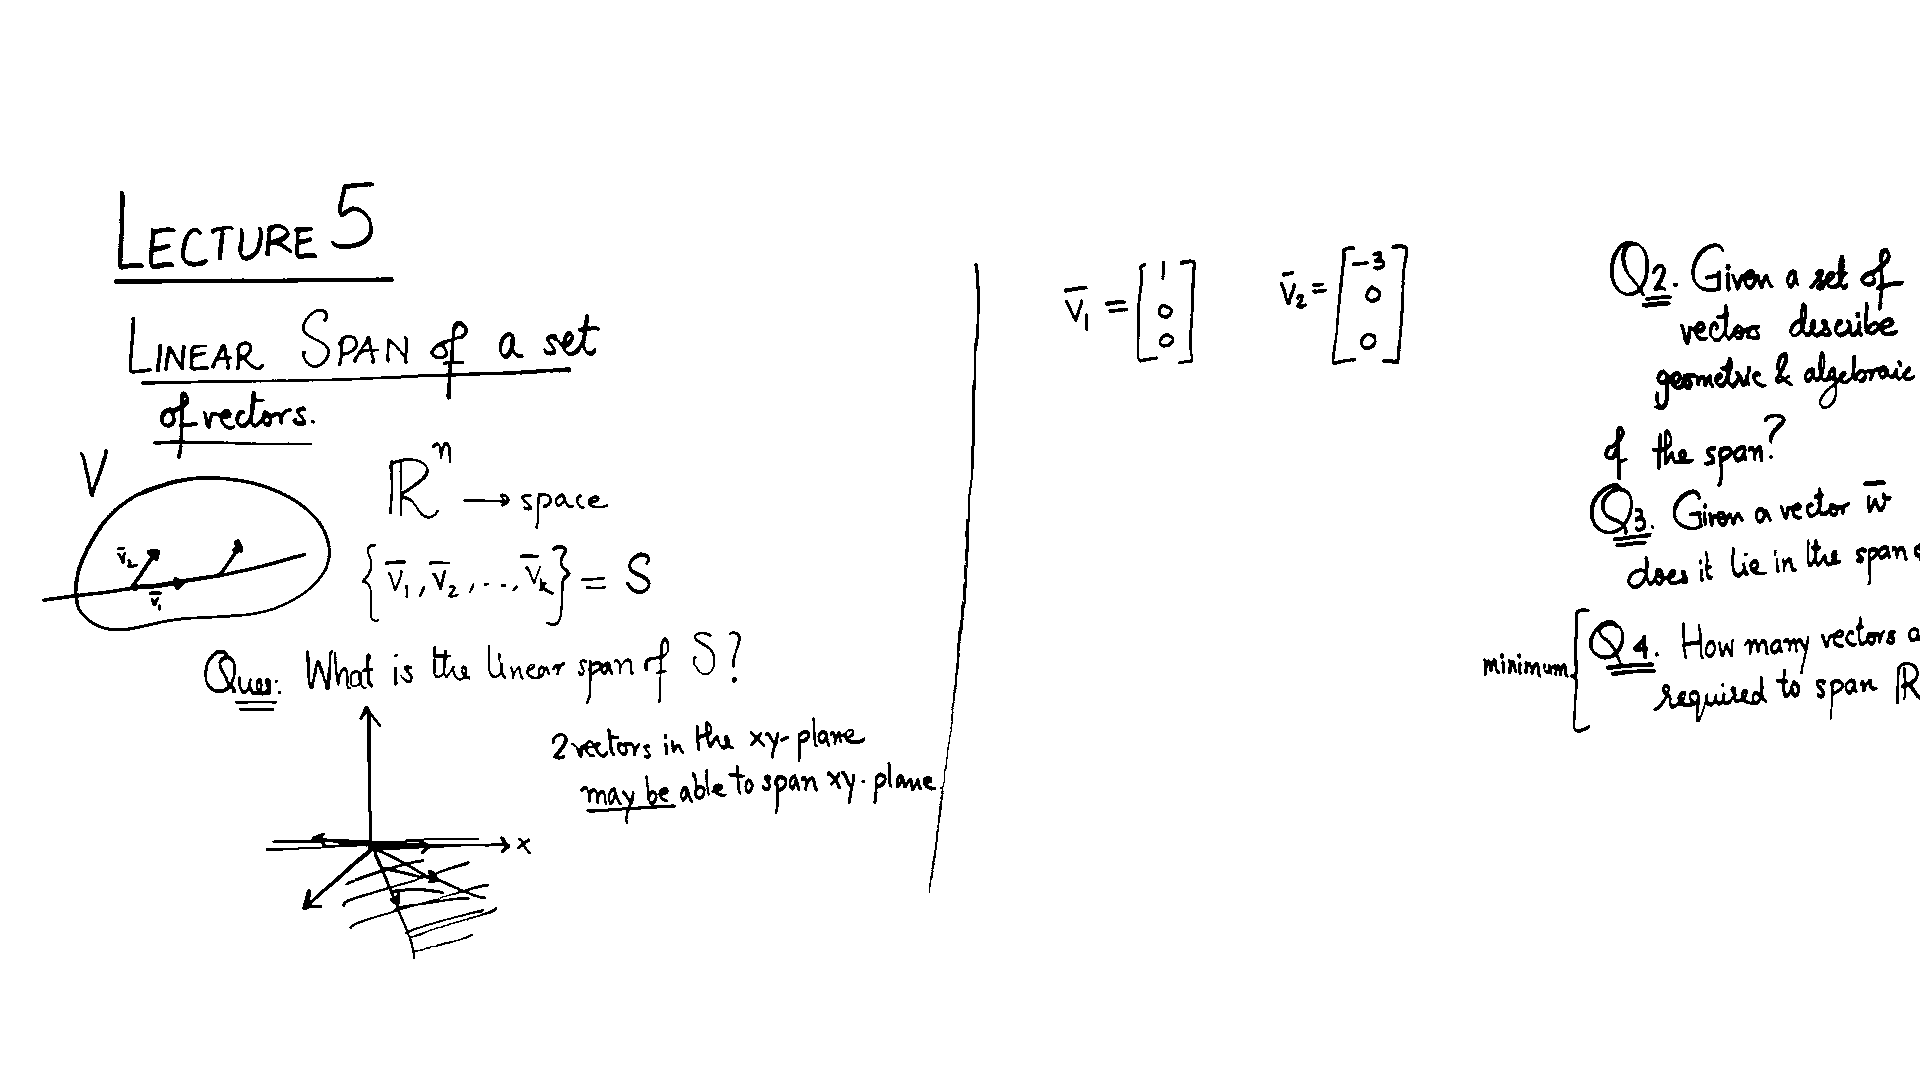 LECTURE 5
LINEAR SPAN of a set
of vectors.
V
ℝⁿ → space
v̄₂
v̄₁
{v̄₁, v̄₂, ..., v̄ₖ} = S
Ques: What is the linear span of S?
2 vectors in the xy-plane
may be able to span xy-plane
x
v̄₁ = [1 0 0] v̄₂ = [-3 0 0]
Q2. Given a set of
vectors describe
geometric & algebraic
of the span?
Q3. Given a vector w̄
does it lie in the span
minimum
Q4. How many vectors a
required to span ℝ